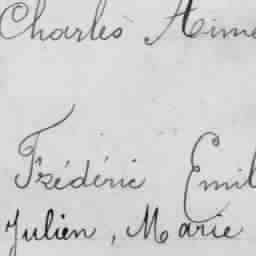 Charles Aimé
Frédéric Emil
Julien, Marie